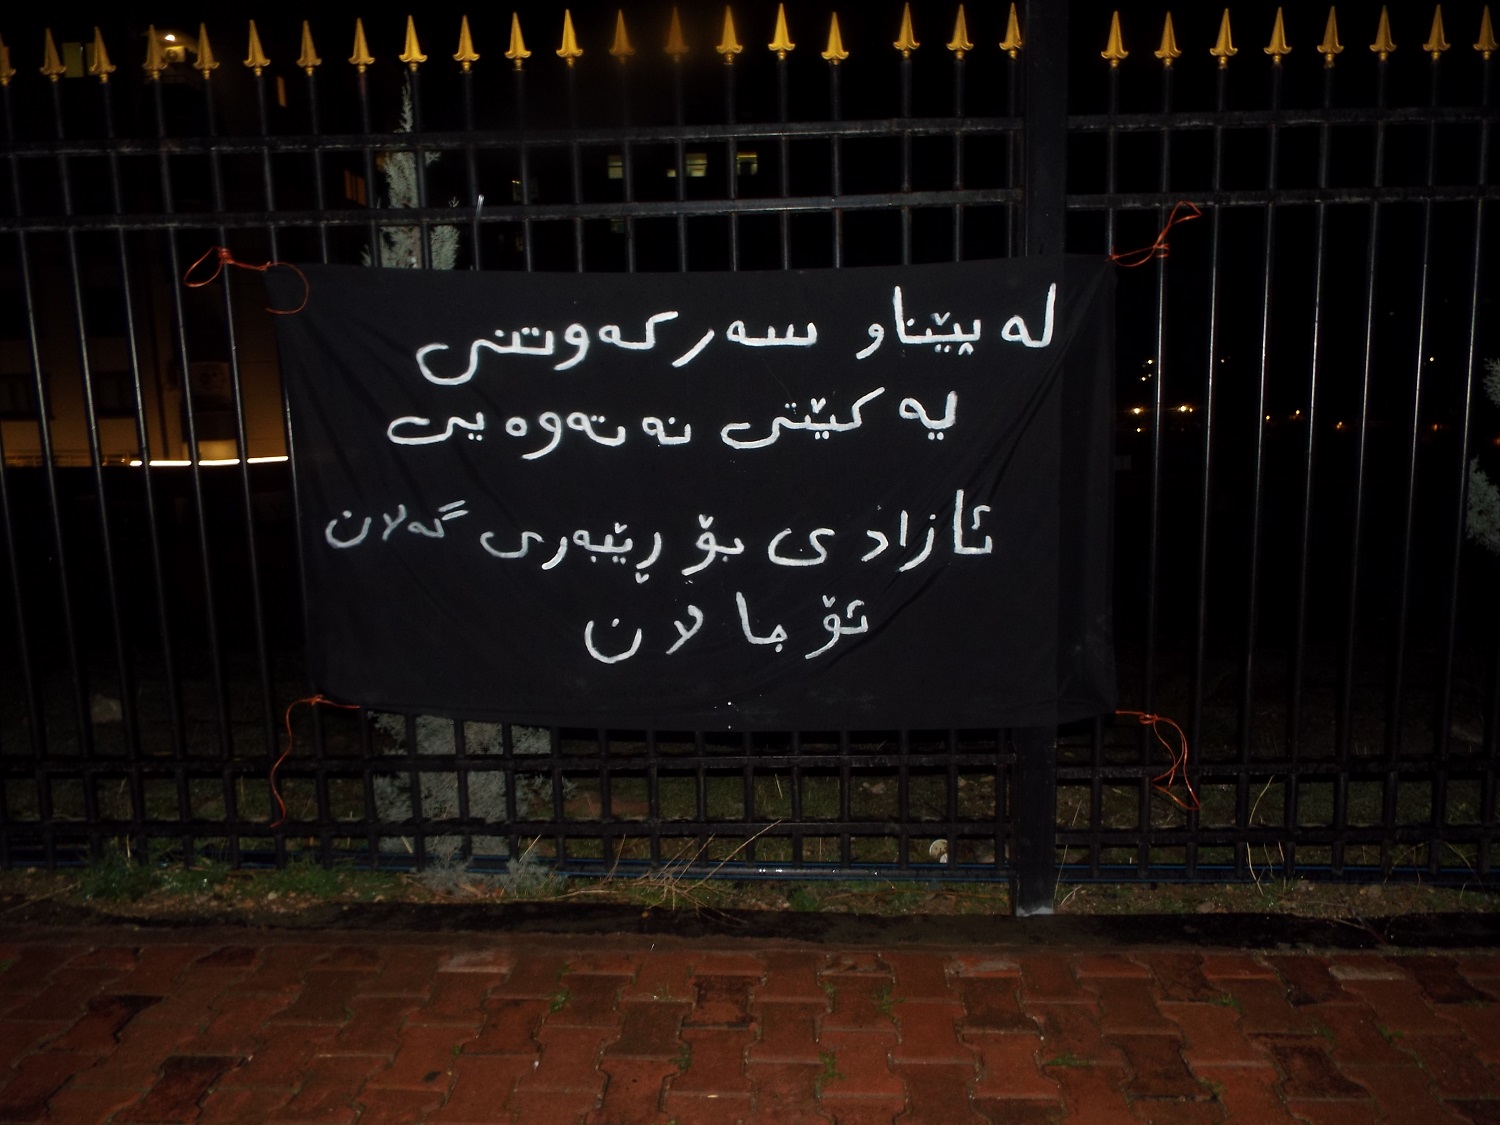 لە پێناو سەرکەوتنی
یەکێتی نەتەوەیی
ئازادی بۆ ڕێبەری گەلان
ئۆجالان